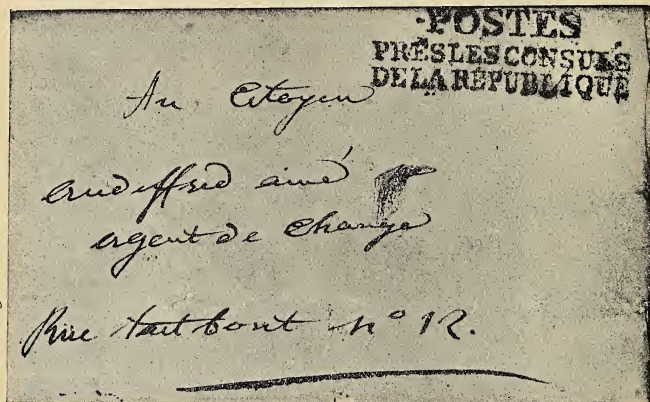 POSTES
PRÈS LES CONSULS
DE LA RÉPUBLIQUE
Au Citoyen
audiffred ainé
agent de Change
Rue taitbout nº 12.